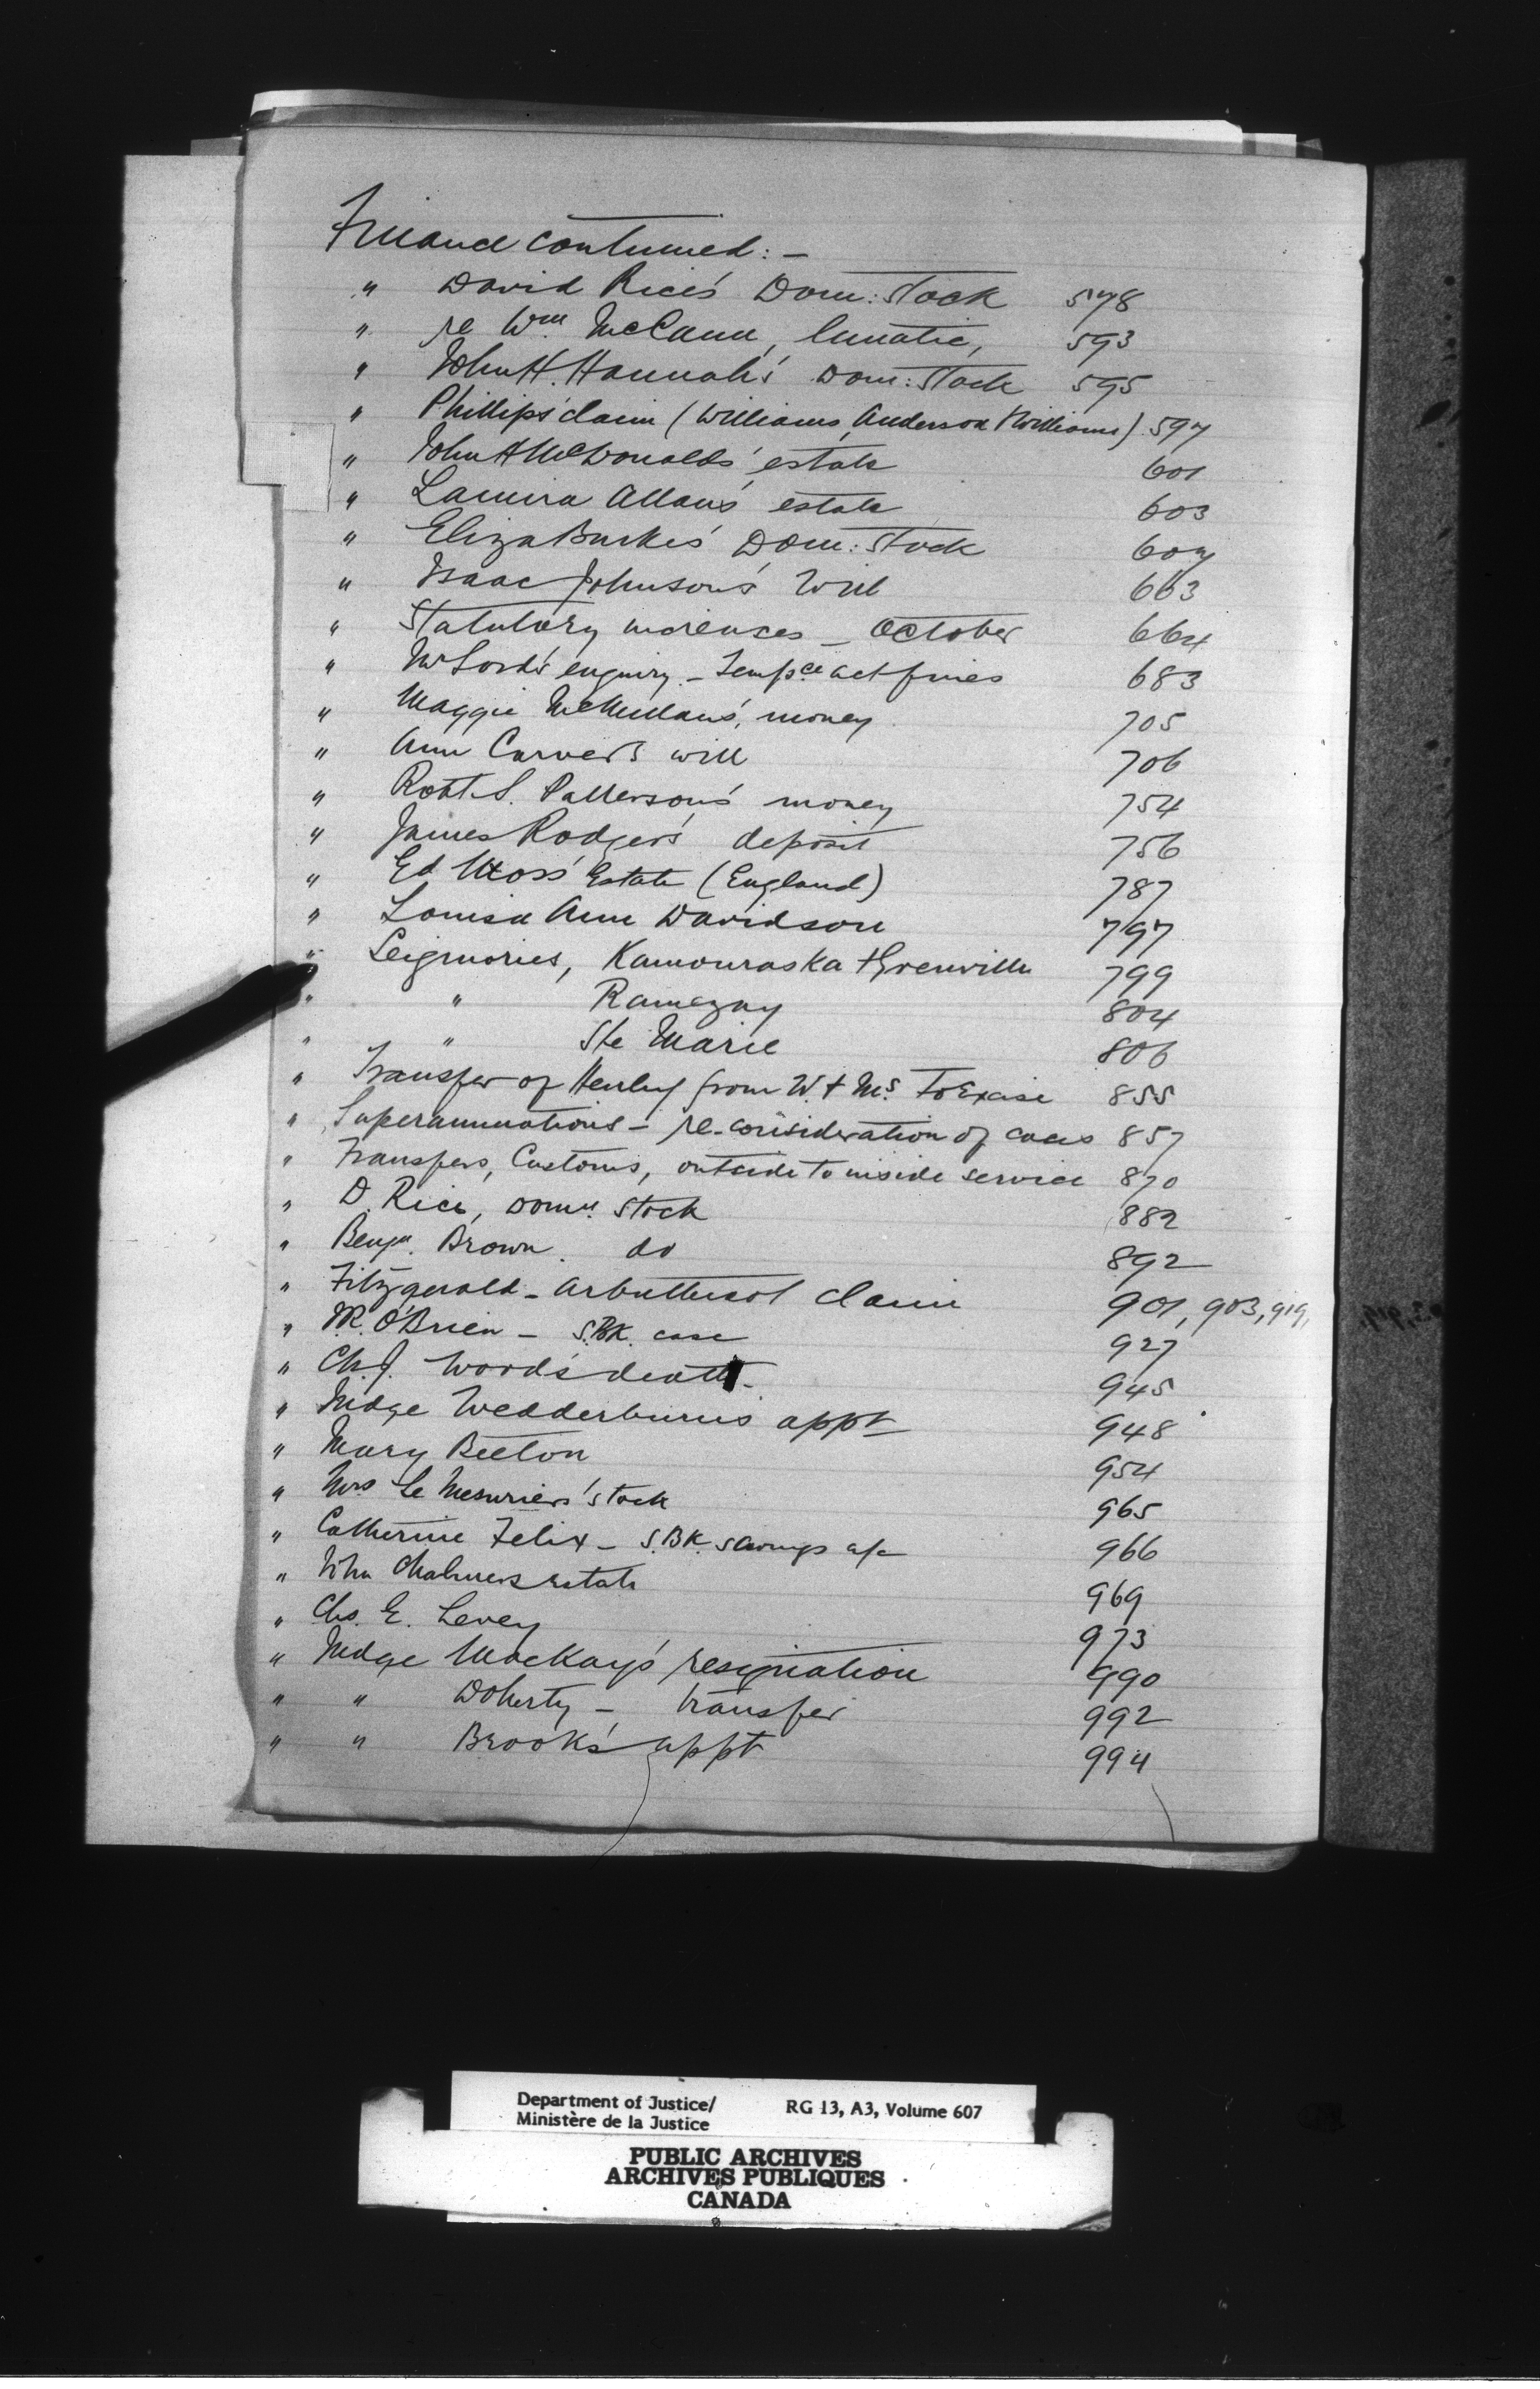 Finance continued:-
" David Rice's Dom: Stock 578
" re Wm McCann, lunatic, 593
" John H. Hannah's Dom: Stock 595
" Phillips' claim (Williams, Anderson & Williams) 597
" John A McDonalds' estate 601
" Lamira Allan's estate 603
" Eliza Burke's Dom: Stock 607
" Isaac Johnson's Will 663
" Statutory increases - October 664
" Mr Lord's enquiry - Tempce act fines 683
" Maggie McMullan's, money 705
" Ann Carver's will 706
" Robt. S. Patterson's money 754
" James Rodger's deposit 756
" Ed Moss' Estate (England) 787
" Louisa Ann Davidson 797
" Seigniories, Kamouraska & Grenville 799
" " Ramezay 804
" " Ste Marie 806
" Transfer of Henley from W. & Ms. to Excise 855
" Superannuations - re-consideration of cases 857
" Transfers, Customs, outside to inside service 870
" D. Rice, Domn. Stock 882
" Benjn. Brown. do 892
" Fitzgerald - Arbuthnot claim 901, 903, 919,
" M. O'Brien - S.BK. case 927
" Ch. J. Wood's death - 945
" Judge Wedderburn's appt 948
" Mary Beeton 954
" Mrs Le Mesurier's stock 965
" Catherine Felix - S.BK. savings a/c 966
" John Chalmers estate 969
" Chs. E. Levey 973
" Judge MacKay's resignation 990
" " Doherty - transfer 992
" " Brook's appt 994
Department of Justice/ RG 13, A3, Volume 607
Ministère de la Justice
PUBLIC ARCHIVES
ARCHIVES PUBLIQUES
CANADA